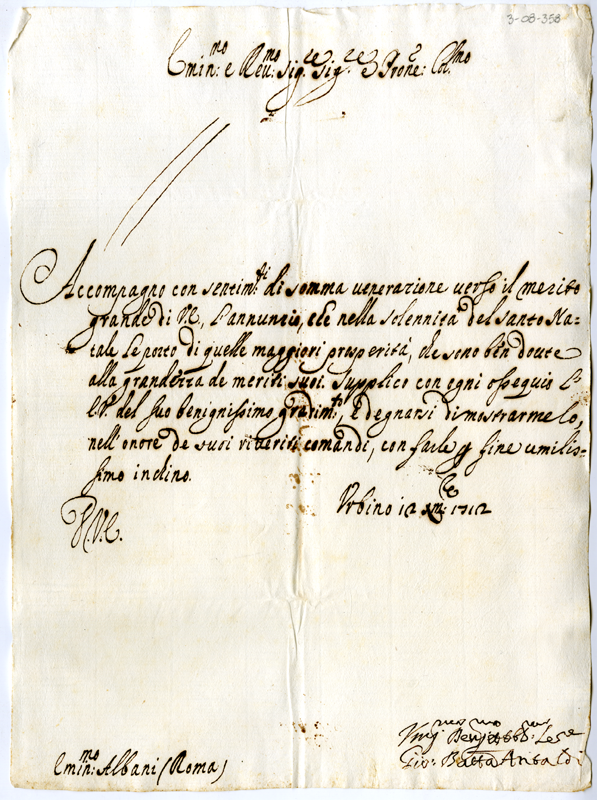 3-08-358
Emin:mo e Reu:mo Sig.re Sig.re e Prone: Col.mo
Accompagno con sentim:ti di somma uenerazione uerso il merito
grande di V.E., l'annunzio, che nella solennità del santo Na-
tale Le porto di quelle maggiori prosperità, che sono ben doute
alla grandezza de meriti suoi. Supplico con ogni ossequio l'
E.V. del suo benignissimo gradim:to, e degnarsi di mostrarmelo,
nell'onore de suoi riueriti comandi, con farle fine umilis-
simo inchino.
Urbino 12 Xm:bre 1712
V.E.
Emin:mo Albani (Roma)
Gio: Batta Antaldi